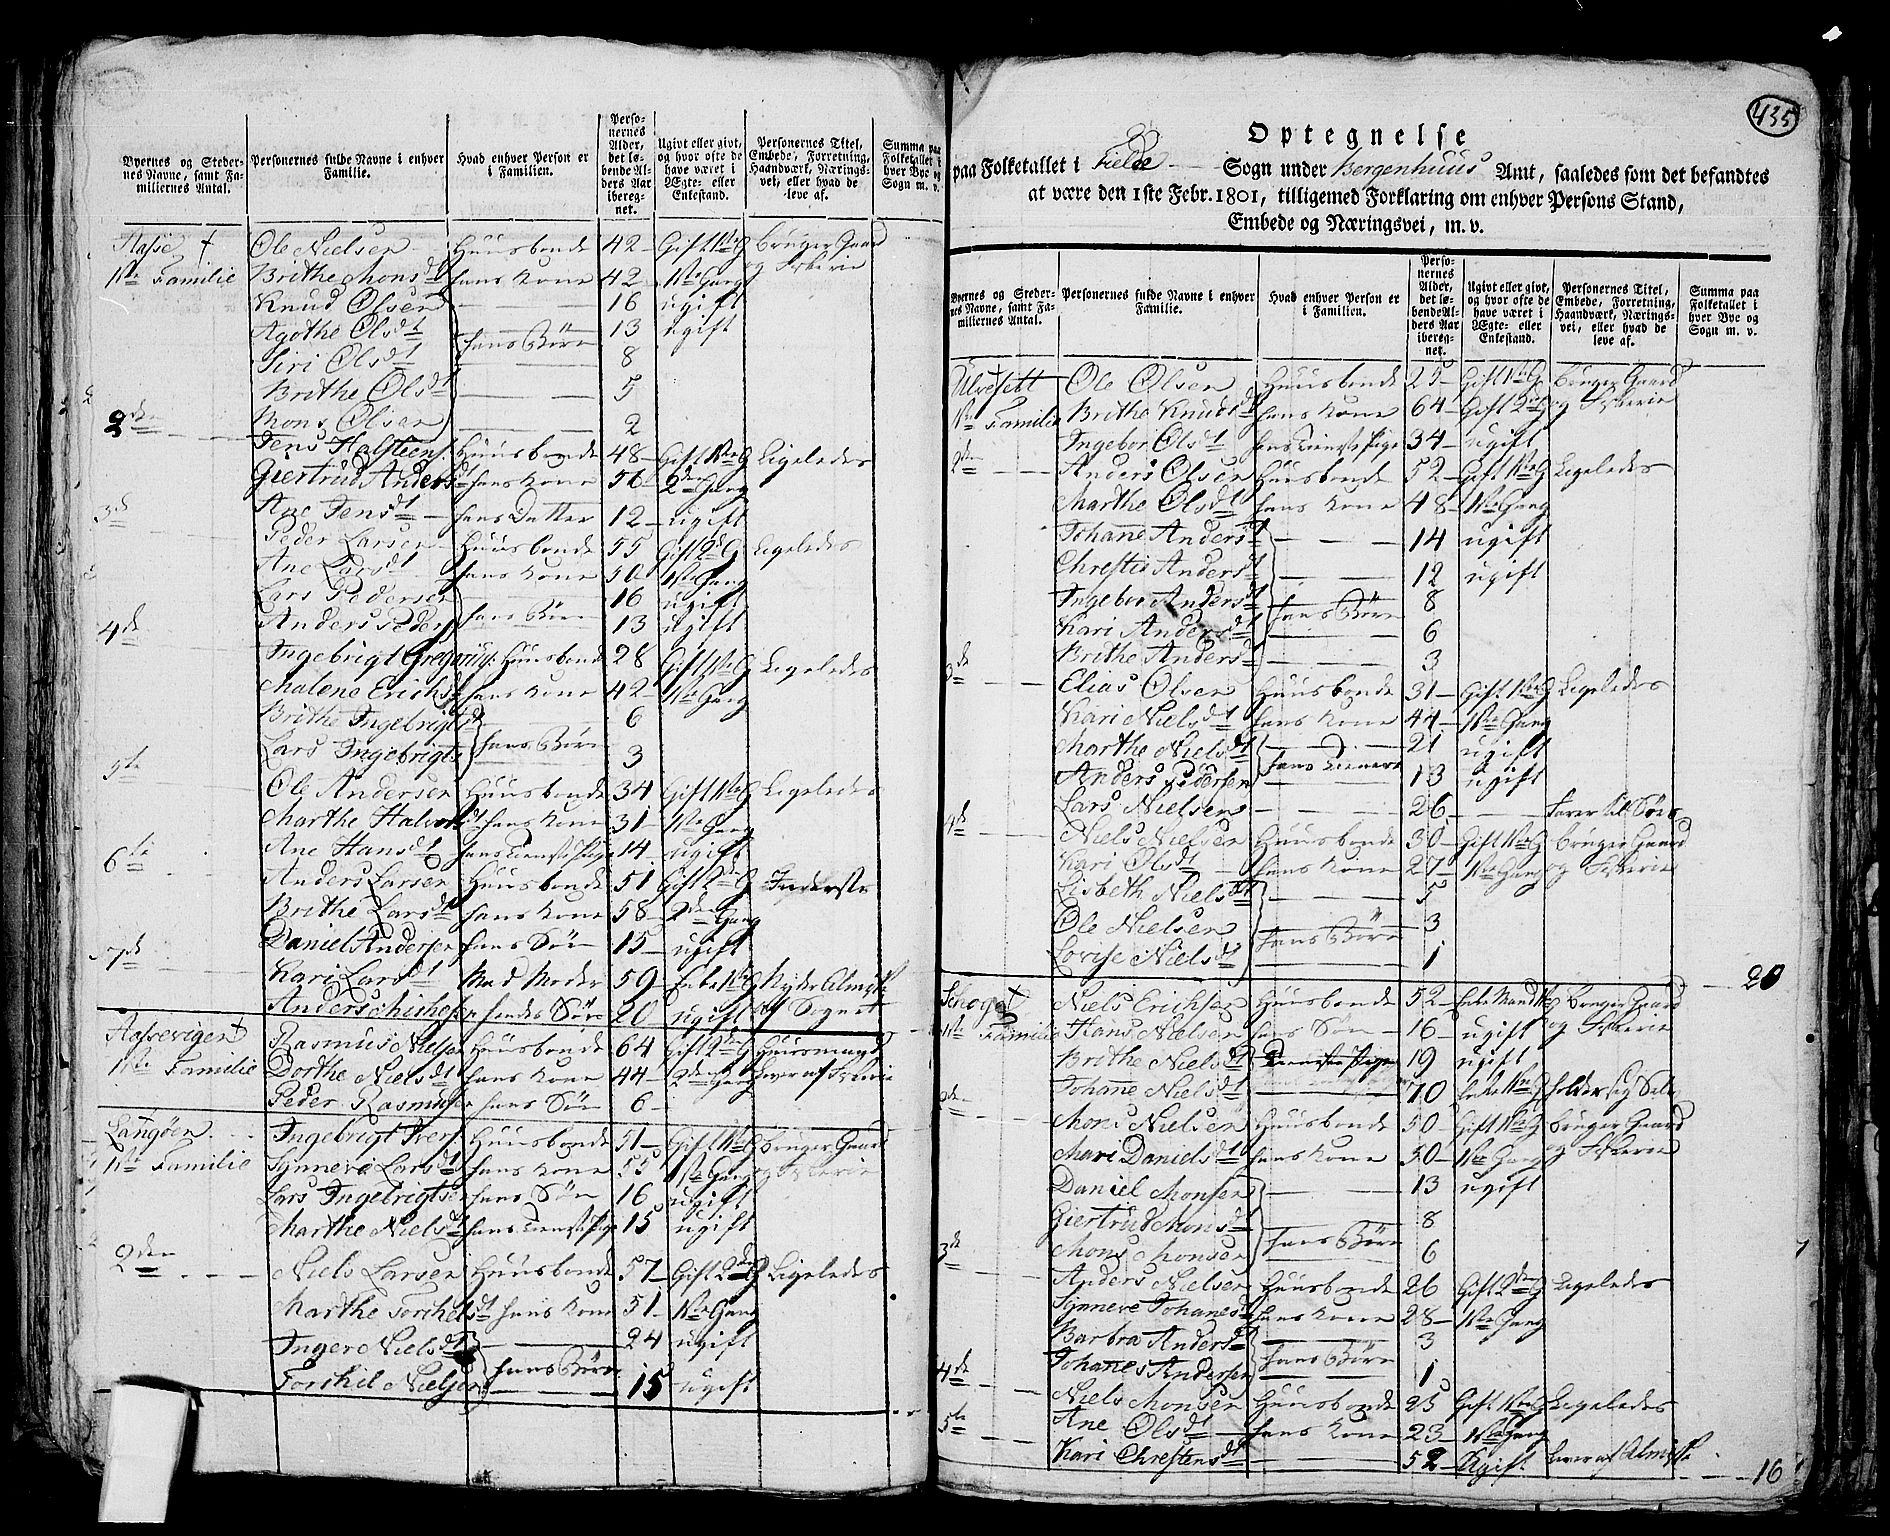 Byernes og Steder-
nes Navne, samt Fa-
miliernes Antal.
Personernes fulde Navne i enhver
Familie.
Hvad enhver Person er
i Familien.
Perso-
nernes
Alder,
det lø-
bende Al-
ders Aar
iberegnet.
Ugivt eller givt,
og hvor ofte de
have været i
Ægte- eller
Enkestand.
Personernes Titel,
Embede, Forretning,
Haandværk, Nærings-
vei, eller hvad de
leve af.
Summa paa
Folketallet i
hver Bye og
Sogn m. v.
Ole Nielsen Huusbonde 42 Gift 1ste G bruger Gaard
1ste Familie Brithe Monsdt hans Kone 42 1ste Gang og Fiskerie
Knud Olsen 16 ugift
Agothe Olsdt hans Børn 13 ugift
Siri Olsdt 8
Brithe Olsdt 5
2den Mons Olsen 2
Jens Halsteens. Huusbonde 48 Gift 1ste G Ligeledes
Giertrud Andersdt hans Kone 56 2den Gang
3d Ane Jensdt hans Datter 12 ugift
Peder Larsen Huusbonde 55 Gift 2d G Ligeledes
Ane Larsdt hans Kone 50 1ste Gang
Lars Pedersen hans Børn 16 ugift
4de Anders Peders 13 ugift
Ingebrigt Gregorius: Huusbonde 28 Gift 1ste G Ligeledes
Malene Erichsd hans Kone 42 1ste Gang
Brithe Ingebrigtsd hans Børn 6
Lars Ingebrigts 3
5te Ole Andersen Huusbonde 34 Gift 1ste G Ligeledes
Marthe Halvorsdt hans Kone 31 1ste Gang
Ane Hansdt hans Tieneste Pige 14 ugift
6te Anders Larsen Huusbonde 51 Gift 2d G Inderste
Brithe Larsdt hans Kone 58 2den Gang
Daniel Andersen hans Søn 15 ugift
7de Kari Larsdt Mad Moder 59 Enke 1ste G
Anders hendes Søn 20 ugift af Sognet
Aassevigen
1ste Familie Rasmus Nielsen Huusbonde 64 Gift 2den G Huusmand
Dorthe Nielsdt hans Kone 44 2den Gang lever af Fiskerie
Peder Rasmusen hans Søn 6
Langøen Ingebrigt Ivers. Huusbonde 51 Gift 1ste G bruger Gaard
1ste Familie Synneve Larsdt hans Kone 55 1ste Gang og Fiskerie
Lars Ingebrigtsen hans Søn 16 ugift
Marthe Nielsdt hans Tieneste Pige 15 ugift
2den Niels Larsen Huusbonde 57 Gift 2den G Ligeledes
Marthe Torchelsdt hans Kone 51 1ste Gang
Inger Nielsdt hans Børn 24 ugift
Torchil Nielsen 15 ugift
435
Optegnelse
paa Folketallet i Fielde Sogn under Bergenhuus Amt, saaledes som det befandtes
at være den 1ste Febr. 1801, tilligemed Forklaring om enhver Persons Stand,
Embede og Næringsvei, m. v.
Byernes og Steder-
nes Navne, samt Fa-
miliernes Antal.
Personernes fulde Navne i enhver
Familie.
Hvad enhver Person er
i Familien.
Perso-
nernes
Alder,
det lø-
bende Al-
ders Aar
ibereg-
net.
Ugivt eller givt,
og hvor ofte de
have været i
Ægte- eller
Enkestand.
Personernes Titel,
Embede, Forretning,
Haandværk, Nærings-
vei, eller hvad de
leve af.
Summa paa
Folketallet i
hver Bye og
Sogn m. v.
Ulvesett Ole Olsen Huusbonde 25 Gift 1ste G bruger Gaard
1ste Familie Brithe Knudsdt hans Kone 64 Gift 2den G og Fiskerie
Ingebor Olsdt hans Tieneste Pige 34 ugift
2den Anders Olsen Huusbonde 52 Gift 1ste G Ligeledes
Marthe Olsdt hans Kone 48 1ste Gang
Johane Andersdt 14 ugift
Chrestie Andersdt 12 ugift
Ingebor Andersdt hans Børn 8
Kari Andersdt 6
Brithe Andersdt 3
3de Elias Olsen Huusbonde 31 Gift 1ste G Ligeledes
Kari Nielsdt hans Kone 44 1ste Gang
Marthe Nielsdt hans Tienere 21 ugift
Anders Pedersen 13 ugift
Lars Nielsen 26 farer til Søes
4d Niels Nielsen Huusbonde 30 Gift 1ste G bruger Gaard
Kari Olsdt hans Kone 27 1ste Gang og Fiskerie
Lisbeth Nielsdt 5
Ole Nielsen hans Børn 3
Lovise Nielsdt 1
20
Niels Erichsen Huusbonde 52 Enke Mand 1ste G bruger Gaard
1ste Familie Hans Nielsen hans Søn 16 ugift og Fiskerie
Brithe Nielsdt Tieneste Pige 19 ugift
Johane Nielsdt 70 Enke 1ste G holder sig Selv
2de Mons Nielsen Huusbonde 50 Gift 1ste G bruger Gaard
Mari Danielsdt hans Kone 50 1ste Gang og Fiskerie
Daniel Monsen 13 ugift
Giertrud Monsdt hans Børn 8
Mons Monsen 6
3de Anders Nielsen Huusbonde 26 Gift 2den G Ligeledes
Synneve Johanesdt hans Kone 28 1ste Gang
Barbra Andersdt hans Børn 3
Johanes Andersen 1
4de Niels Monsen Huusbonde 25 Gift 1ste G Ligeledes
Ane Olsdt hans Kone 23 1ste Gang
5te Kari Chrestensdt 52 Ugift. lever af Almisse
16